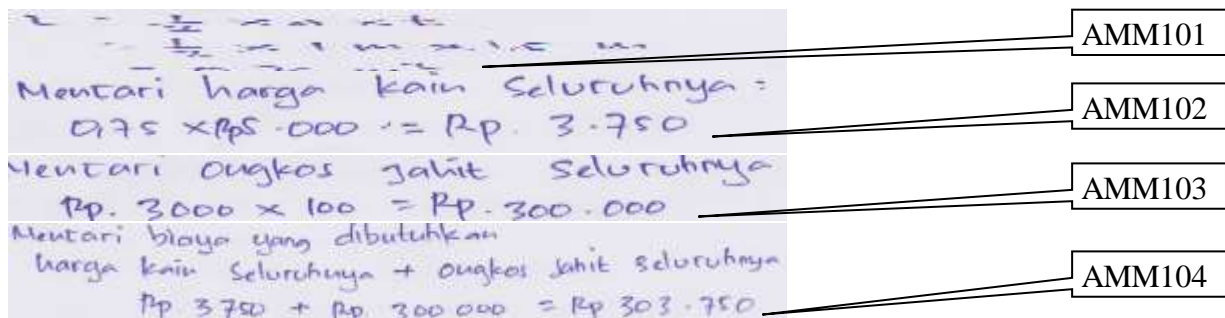 AMM101
Mencari harga kain Seluruhnya =
0,75 x Rp5.000 = Rp. 3.750
AMM102
Mencari ongkos jahit Seluruhnya
Rp. 3000 x 100 = Rp. 300.000
AMM103
Mencari biaya yang dibutuhkan
harga kain Seluruhnya + ongkos jahit seluruhnya
Rp 3750 + Rp. 300 000 = Rp 303.750
AMM104